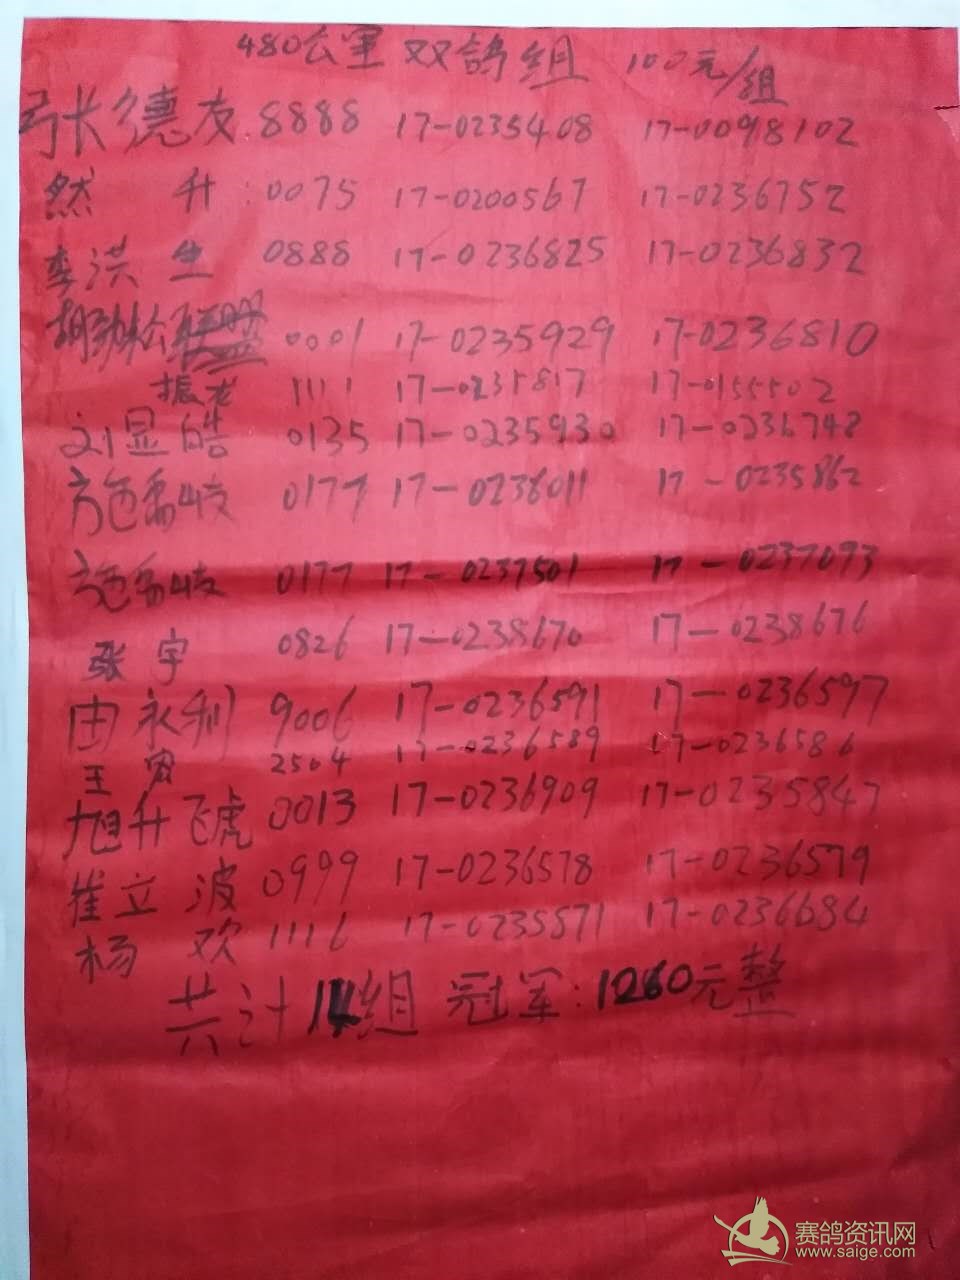 480公里 双鸽组 100元/组
张德友 8888 17-0235408 17-0098102
然 升 0075 17-0200567 17-0236752
李洪生 0888 17-0236825 17-0236832
胡劲松联盟 0001 17-0235929 17-0236810
振龙 1111 17-0235817 17-0155502
刘显皓 0135 17-0235930 17-0236748
0177 17-0238011 17-0235862
0177 17-0237501 17-0237093
张宇 0826 17-0238670 17-0238676
由永利 9006 17-0236591 17-0236597
王 2504 17-0236589 17-0236586
旭升飞虎 0013 17-0236909 17-0235847
崔立波 0999 17-0236578 17-0236579
杨欢 1116 17-0235871 17-0236684
共计14组 冠军:1260元整
赛鸽资讯网
www.saige.com